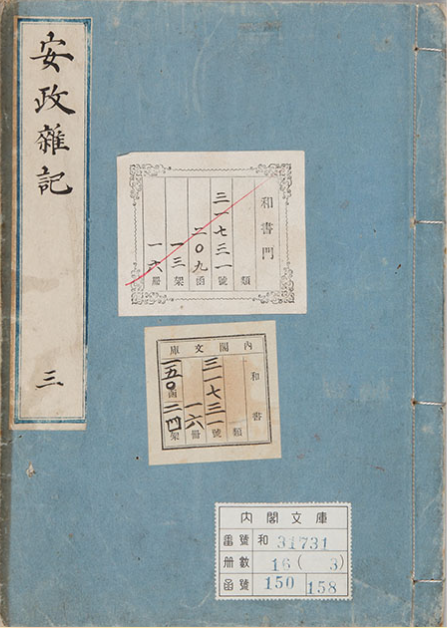 安政雜記
三
和書門
類
三一七三一號
二〇九函
一三架
一六冊
內閣文庫
和書
類
三一七三一號
一六冊
一五〇函
二四架
內閣文庫
番號 和 31731
冊數 16( 3)
函號 150 158